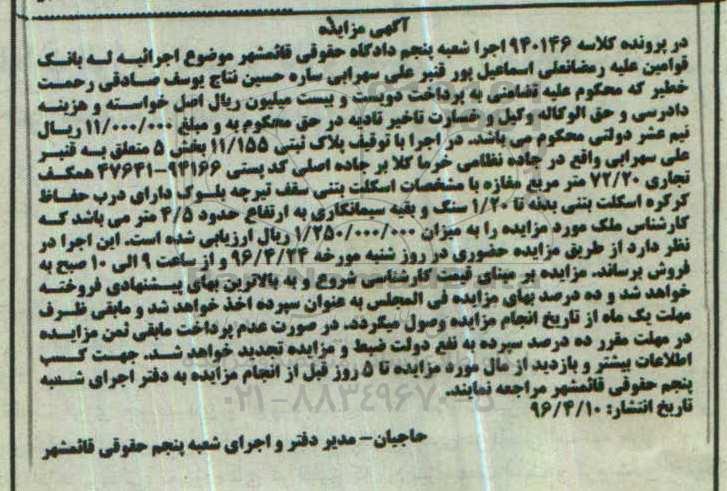 آگهی مزایده
در پرونده کلاسه ۹۴۰۱۴۶ اجرا شعبه پنجم دادگاه حقوقی قائمشهر موضوع اجرائیه له بانک
قوامین علیه رمضانعلی اسماعیل پور قنبر علی سهرابی ساره حسین نتاج یوسف صادقی رحمت
خطیر که محکوم علیه تضامنی به پرداخت دویست و بیست میلیون ریال اصل خواسته و هزینه
دادرسی و حق الوکاله وکیل و خسارت تاخیر تادیه در حق محکوم به و مبلغ ۱۱/۰۰۰/۰۰۰ ریال
نیم عشر دولتی محکوم می باشد. در اجرا با توقیف پلاک ثبتی ۱۱/۱۵۵ بخش ۵ متعلق به قنبر
علی سهرابی واقع در جاده نظامی خوما کلا بر جاده اصلی کد پستی ۹۴۱۶۶-۴۷۶۴۱ همکف
تجاری ۷۲/۲۰ متر مربع مغازه با مشخصات اسکلت بتنی سقف تیرچه بلوک دارای درب حفاظ
کرکره اسکلت بتنی بدنه تا ۱/۲۰ سنگ و بقیه سیمانکاری به ارتفاع حدود ۴/۵ متر می باشد که
کارشناس ملک مورد مزایده را به میزان ۱/۲۵۰/۰۰۰/۰۰۰ ریال ارزیابی شده است. این اجرا در
نظر دارد از طریق مزایده حضوری در روز شنبه مورخه ۹۶/۴/۲۴ و از ساعت ۹ الی ۱۰ صبح به
فروش برساند. مزایده بر مبنای قیمت کارشناسی شروع و به بالاترین بهای پیشنهادی فروخته
خواهد شد و ده درصد بهای مزایده فی المجلس به عنوان سپرده اخذ خواهد شد و مابقی ظرف
مهلت یک ماه از تاریخ انجام مزایده وصول میگردد. در صورت عدم پرداخت مابقی ثمن مزایده
در مهلت مقرر ده درصد سپرده به نفع دولت ضبط و مزایده تجدید خواهد شد. جهت کسب
اطلاعات بیشتر و بازدید از مال مورد مزایده تا ۵ روز قبل از انجام مزایده به دفتر اجرای شعبه
پنجم حقوقی قائمشهر مراجعه نمایند.
تاریخ انتشار: ۹۶/۴/۱۰
۰۲۱-۸۸۳۴۹۶۷۰-۵
حاجیان- مدیر دفتر و اجرای شعبه پنجم حقوقی قائمشهر